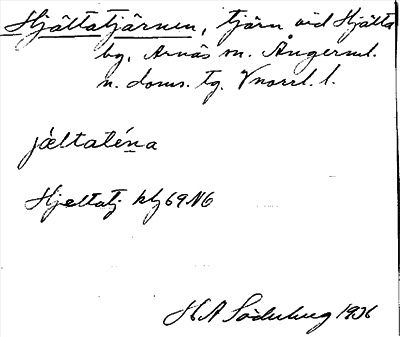 Hjältatjärnen, tjärn vid Hjälta
by, Arnäs sn. Ångerml.
n. doms. tg. Vnorrl. l.
jæltaténa
Hjeltatj. kbl 69 NG
H A Söderberg 1936